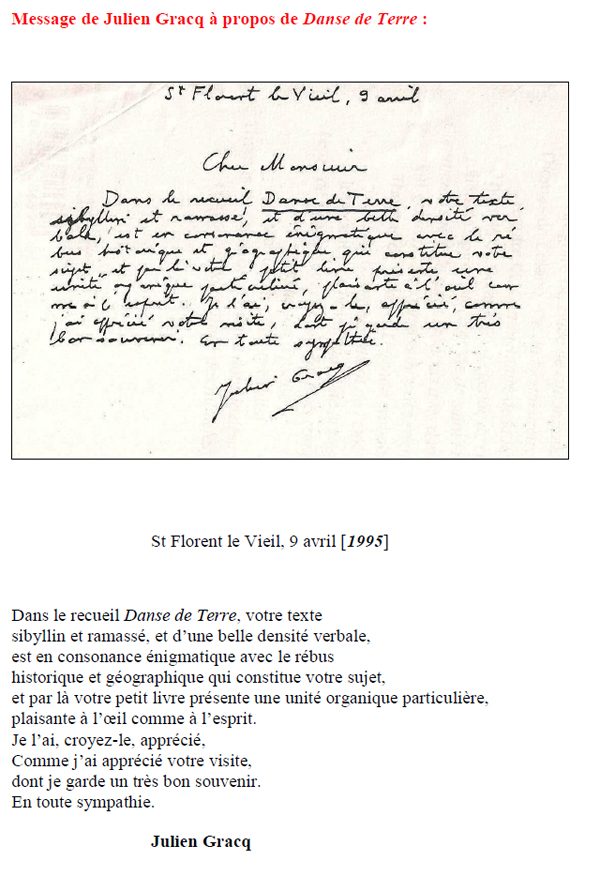 Message de Julien Gracq à propos de Danse de Terre :
St Florent le Vieil, 9 avril
Cher Monsieur
Dans le recueil Danse de Terre, votre texte
sibyllin et ramassé, et d'une belle densité ver
bale, est en consonance énigmatique avec le ré
bus historique et géographique qui constitue votre
sujet, et par là votre petit livre présente une
unité organique particulière, plaisante à l'œil com
me à l'esprit. Je l'ai, croyez-le, apprécié, comme
j'ai apprécié votre visite, dont je garde un très
bon souvenir. En toute sympathie.
Julien Gracq
St Florent le Vieil, 9 avril [1995]
Dans le recueil Danse de Terre, votre texte
sibyllin et ramassé, et d’une belle densité verbale,
est en consonance énigmatique avec le rébus
historique et géographique qui constitue votre sujet,
et par là votre petit livre présente une unité organique particulière,
plaisante à l’œil comme à l’esprit.
Je l’ai, croyez-le, apprécié,
Comme j’ai apprécié votre visite,
dont je garde un très bon souvenir.
En toute sympathie.
Julien Gracq